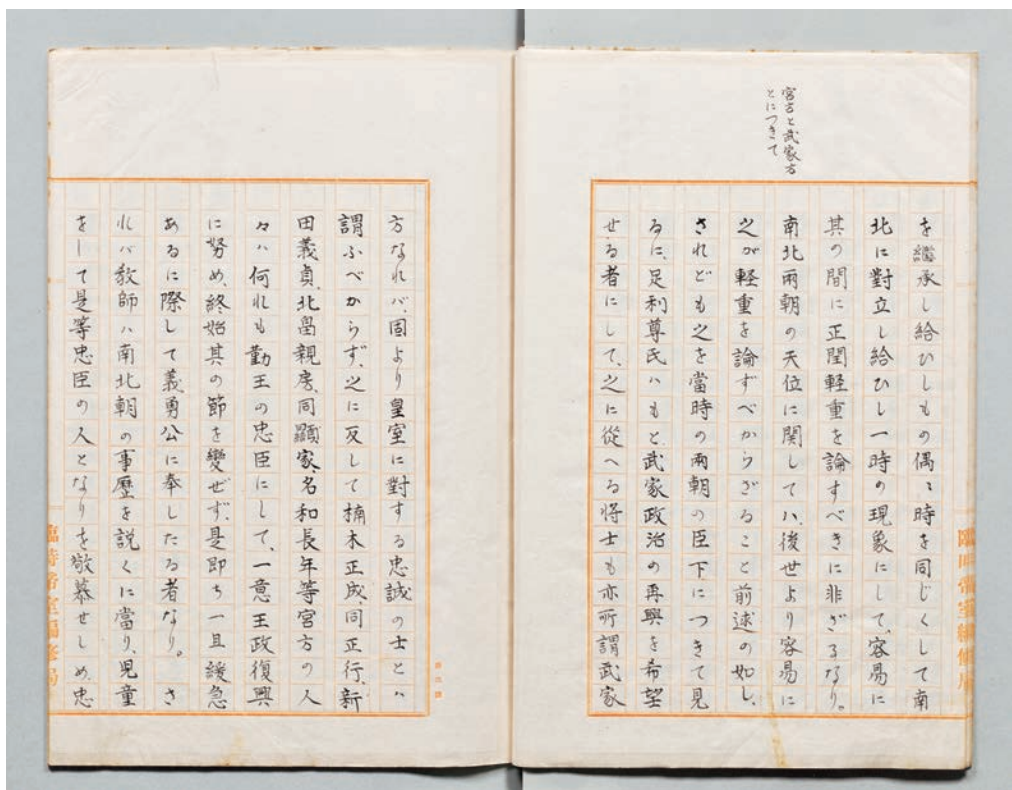 宮方と武家方
とにつきて
を繼承し給ひしもの偶〻時を同じくして南
北に對立し給ひし一時の現象にして、容易に
其の間に正閏軽重を論ずべきに非ざるなり。
南北兩朝の天位に関してハ、後世より容易に
之が軽重を論ずべからざること前述の如し、
されども之を當時の兩朝の臣下につきて見
るに、足利尊氏ハもと武家政治の再興を希望
せる者にして、之に從へる將士も亦所謂武家
方なれバ、固より皇室に對する忠誠の士とハ
謂ふべからず、之に反して楠木正成、同正行、新
田義貞、北畠親房、同顯家、名和長年等宮方の人
々ハ何れも勤王の忠臣にして、一意王政復興
に努め、終始其の節を變ぜず、是即ち一旦緩急
あるに際して義勇公に奉したる者なり。さ
れバ教師ハ南北朝の事歷を説くに當り、児童
をして是等忠臣の人となりを敬慕せしめ、忠
臨時帝室編修局